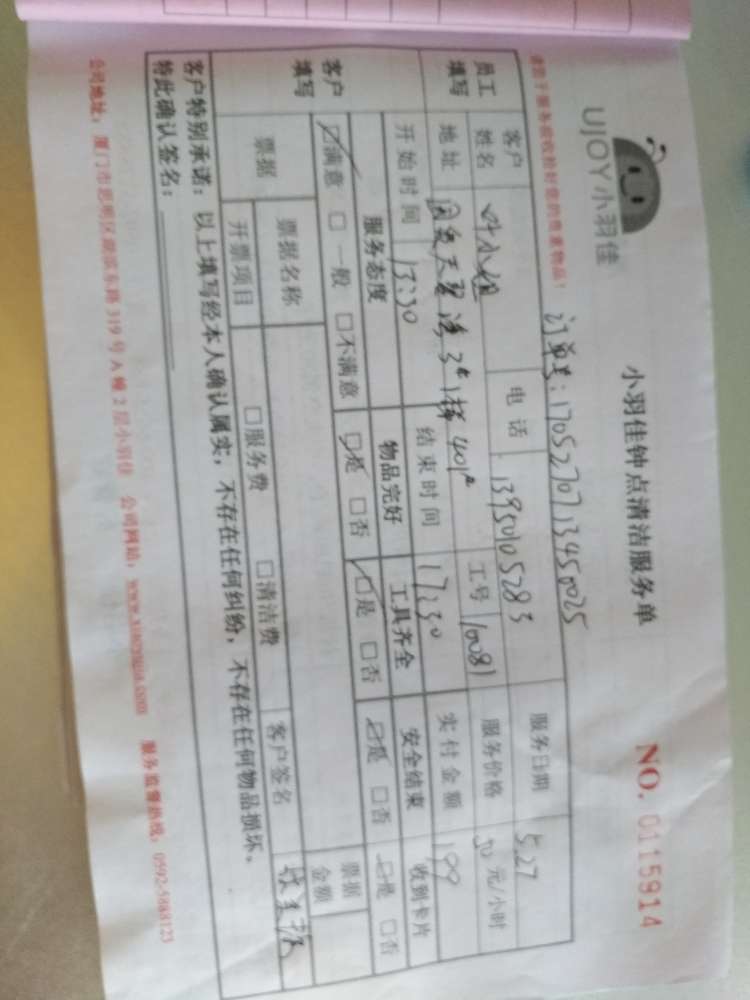 UJOY小羽佳
小羽佳钟点清洁服务单
NO. 0115914
请您于服务前收拾好您的贵重物品！
订单号：1705270713450025
服务日期 5.27
员工填写
客户姓名 叶小姐
电话 13950105283
服务价格 50 元/小时
地址 3#1梯401#
工号 10081
实付金额 199
开始时间 13:30
结束时间 17:30
客户填写
服务态度 物品完好 工具齐全 安全结束 收到卡片
☑满意 □一般 □不满意 ☑是 □否 ☑是 □否 ☑是 □否 ☑是 □否
票据
票据名称
票据金额
开票项目 □服务费 □清洁费
客户签名
客户特别承诺：以上填写经本人确认属实，不存在任何纠纷，不存在任何物品损坏，
特此确认签名：
公司地址：厦门市思明区湖滨东路319号A幢2层小羽佳 公司网站：www.xiaoyujia.com 服务监督热线：0592-5888123